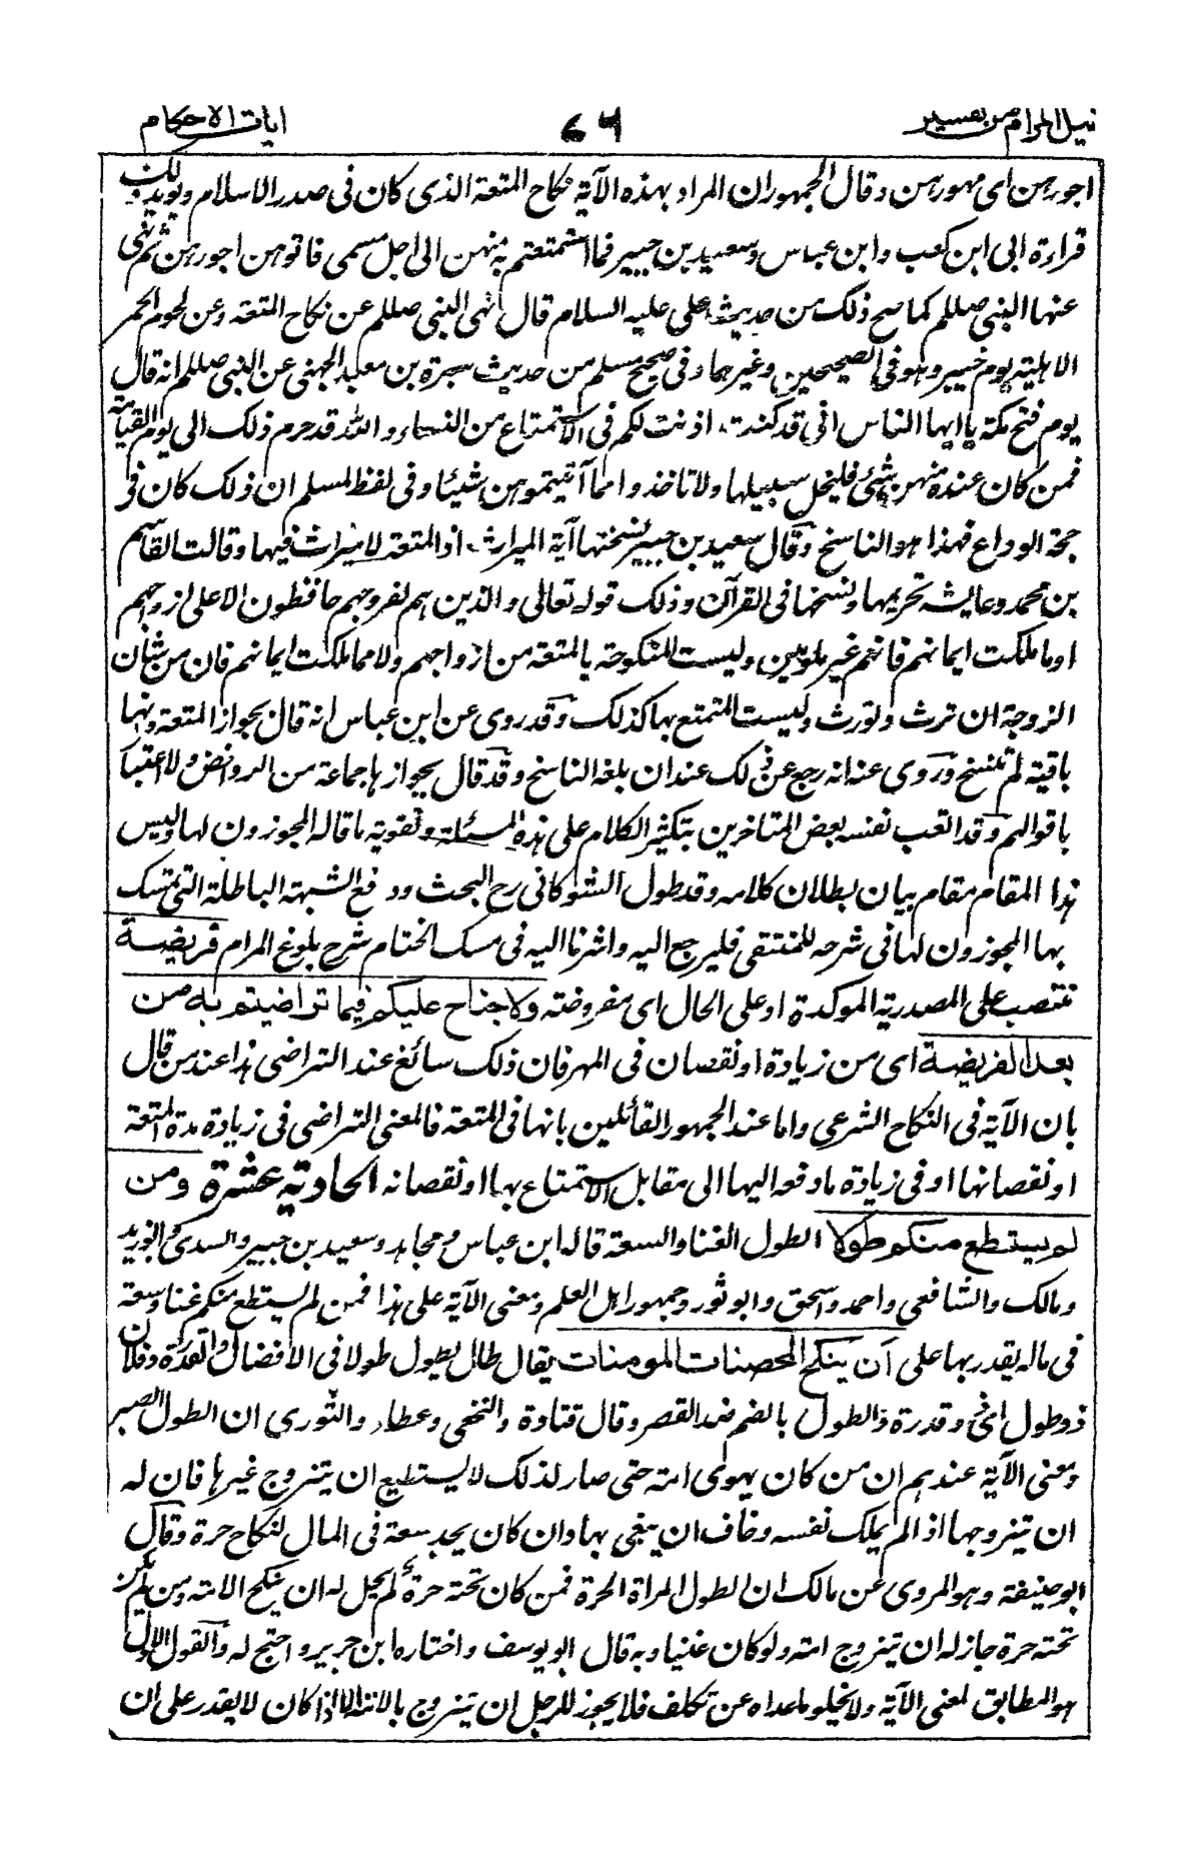 نيل المرام من تفسير ٧٦ ايات الاحكام
اجورهن اى مهورهن وقال الجمهور ان المراد بهذه الآية نكاح المتعة الذى كان فى صدر الاسلام ويويد ذلك
قراءة ابى ابن كعب وابن عباس وسعيد بن جبير فما استمتعتم به منهن الى اجل مسمى فاتوهن اجورهن ثم نهى
عنها النبى صللم كما صح ذلك من حديث على عليه السلام قال نهى النبى صللم عن نكاح المتعة وعن لحوم الحمر
الاهلية يوم خيبر وهو فى الصحيحين وغيرهما وفى صحيح مسلم من حديث سبرة بن معبد الجهنى عن النبى صللم انه قال
يوم فتح مكة يا ايها الناس انى قد كنت اذنت لكم فى الاستمتاع من النساء والله قد حرم ذلك الى يوم القيامة
فمن كان عنده منهن شئ فليخل سبيلها ولا تاخذوا مما آتيتموهن شيئا وفى لفظ لمسلم ان ذلك كان فى
حجة الوداع فهذا هو الناسخ وقال سعيد بن جبير نسختها آية الميراث اذ المتعة لا ميراث فيها وقالت القاسم
بن محمد وعايشة تحريمها ونسخها فى القرآن وذلك قوله تعالى والذين هم لفروجهم حافظون الا على ازواجهم
او ما ملكت ايمانهم فانهم غير ملومين وليست المنكوحة بالمتعة من ازواجهم ولا مما ملكت ايمانهم فان من شان
الزوجة ان ترث وتورث وليست المتمتع بها كذلك وقد روى عن ابن عباس انه قال بجواز المتعة وانها
باقية لم تنسخ وروى عنه انه رجع عن ذلك عند ان بلغه الناسخ وقد قال بجوازها جماعة من الروافض ولا اعتبار
باقوالهم وقد اتعب نفسه بعض المتاخرين بتكثير الكلام على هذه المسئلة وتقوية ما قاله المجوزون لها وليس
هذا المقام مقام بيان بطلان كلامه وقد طول الشوكانى رح البحث ودفع الشبهة الباطلة التى تمسك
بها المجوزون لها فى شرحه للمنتقى فليرجع اليه واشرنا اليه فى مسك الختام شرح بلوغ المرام فريضة
تنتصب على المصدرية الموكدة او على الحال اى مفروضة ولا جناح عليكم فيما تراضيتم به من
بعد الفريضة اى من زيادة او نقصان فى المهر فان ذلك سائغ عند التراضى هذا عند من قال
بان الآية فى النكاح الشرعى واما عند الجمهور القائلين بانها فى المتعة فالمعنى التراضى فى زيادة مدة المتعة
او نقصانها او فى زيادة ما دفعه اليها الى مقابل الاستمتاع بها او نقصانه الحادية عشرة ومن
لم يستطع منكم طولا الطول الغنا والسعة قاله ابن عباس ومجاهد وسعيد بن جبير والسدى وابو زيد
ومالك والشافعى واحمد واسحق وابو ثور وجمهور اهل العلم ومعنى الآية على هذا فمن لم يستطع منكم غنا وسعة
فى ماله يقدر بها على ان ينكح المحصنات المومنات يقال طال يطول طولا فى الافضال والقدرة وفلان
ذو طول اى ذو قدرة والطول بالضم ضد القصر وقال قتادة والنخعى وعطاء والثورى ان الطول الصبر
ومعنى الآية عندهم ان من كان يهوى امة حتى صار لذلك لا يستطيع ان يتزوج غيرها فان له
ان يتزوجها اذا لم يملك نفسه وخاف ان يبغى بها وان كان يجد سعة فى المال لنكاح حرة وقال
ابو حنيفة وهو المروى عن مالك ان الطول المراة الحرة فمن كان تحته حرة لم يحل له ان ينكح الامة ومن لم يكن
تحته حرة جاز له ان يتزوج امة ولو كان غنيا وبه قال ابو يوسف واختاره ابن جرير واحتج له والقول الاول
هو المطابق لمعنى الآية ولا يخلو ما عداه عن تكلف فلا يجوز للرجل ان يتزوج بالامة الا اذا كان لا يقدر على ان